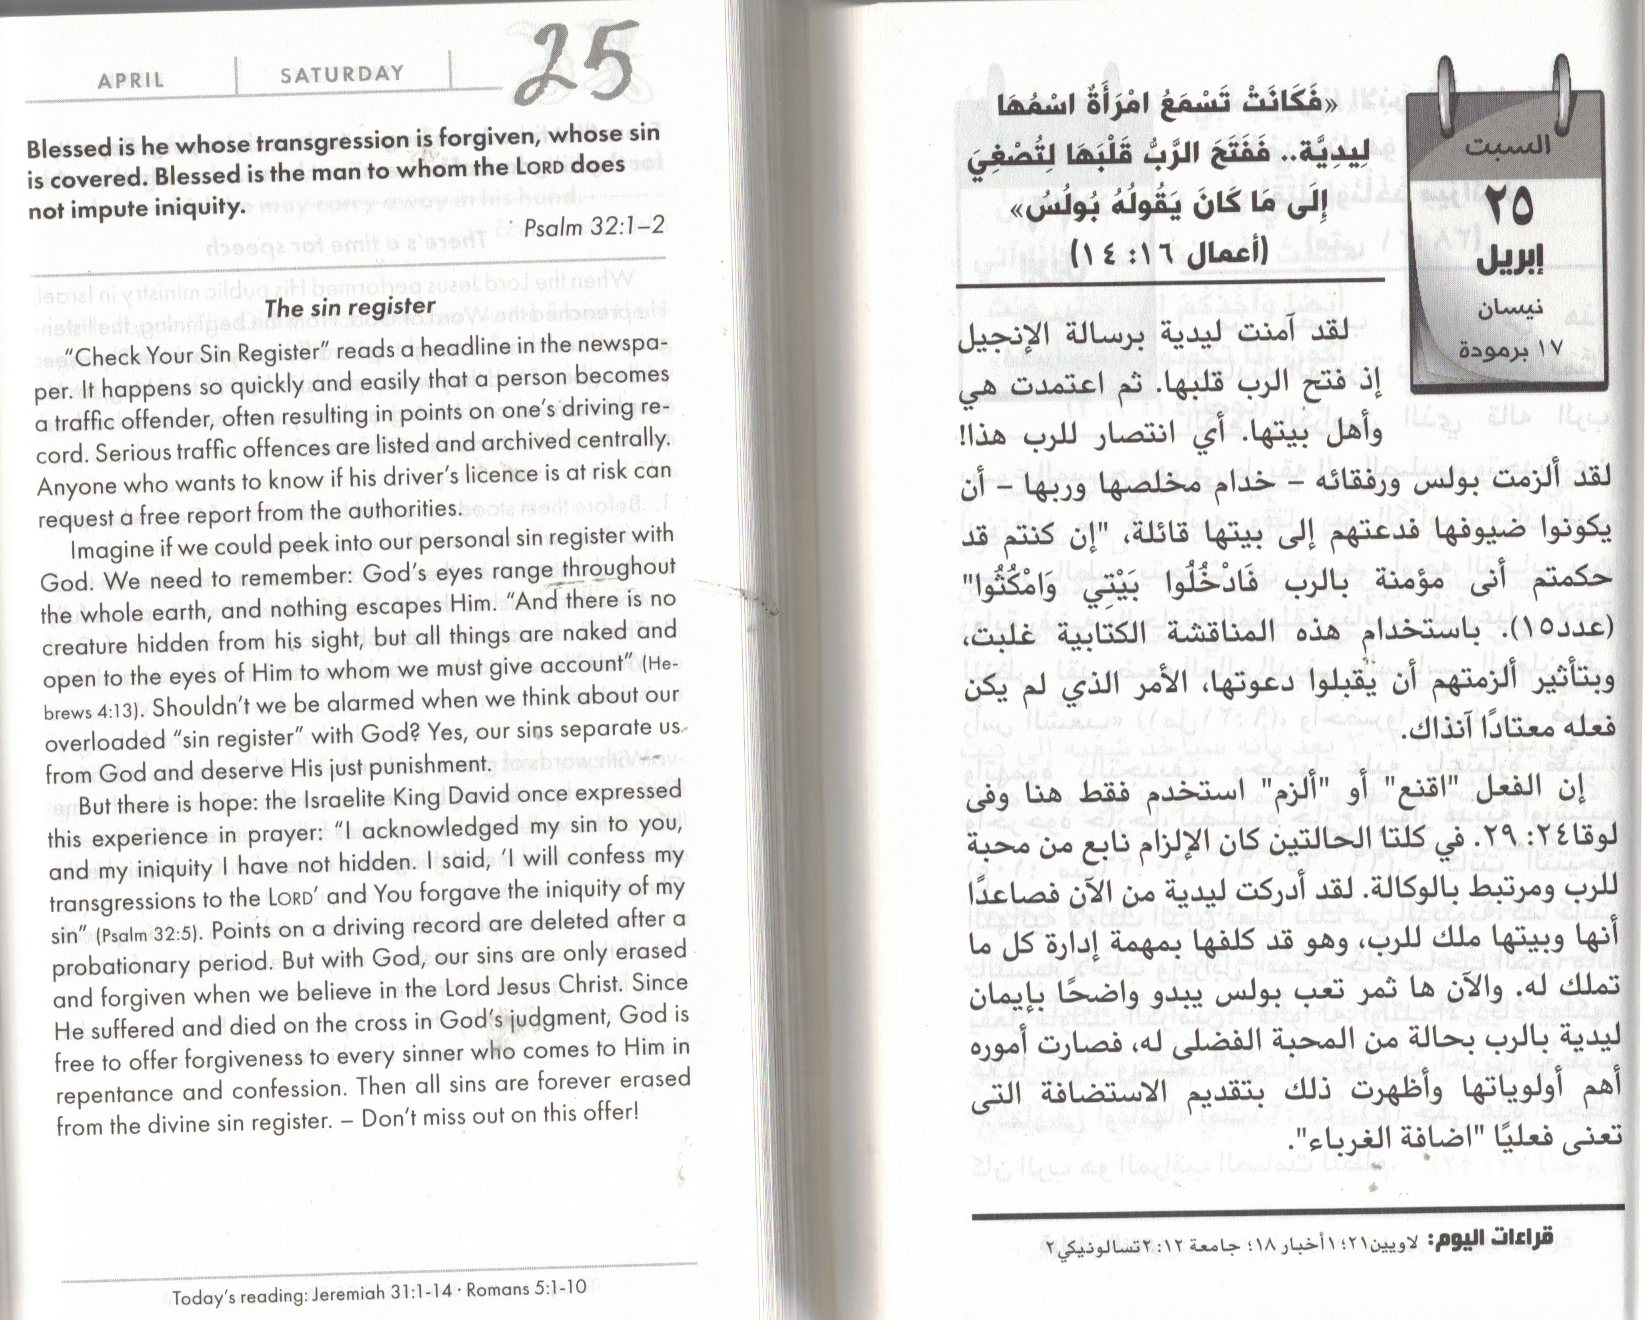 APRIL SATURDAY 25
Blessed is he whose transgression is forgiven, whose sin
is covered. Blessed is the man to whom the LORD does
not impute iniquity.
Psalm 32:1–2
The sin register
“Check Your Sin Register” reads a headline in the newspa-
per. It happens so quickly and easily that a person becomes
a traffic offender, often resulting in points on one’s driving re-
cord. Serious traffic offences are listed and archived centrally.
Anyone who wants to know if his driver’s licence is at risk can
request a free report from the authorities.
Imagine if we could peek into our personal sin register with
God. We need to remember: God’s eyes range throughout
the whole earth, and nothing escapes Him. “And there is no
creature hidden from his sight, but all things are naked and
open to the eyes of Him to whom we must give account” (He-
brews 4:13). Shouldn’t we be alarmed when we think about our
overloaded “sin register” with God? Yes, our sins separate us
from God and deserve His just punishment.
But there is hope: the Israelite King David once expressed
this experience in prayer: “I acknowledged my sin to you,
and my iniquity I have not hidden. I said, ‘I will confess my
transgressions to the LORD’ and You forgave the iniquity of my
sin” (Psalm 32:5). Points on a driving record are deleted after a
probationary period. But with God, our sins are only erased
and forgiven when we believe in the Lord Jesus Christ. Since
He suffered and died on the cross in God’s judgment, God is
free to offer forgiveness to every sinner who comes to Him in
repentance and confession. Then all sins are forever erased
from the divine sin register. – Don’t miss out on this offer!
Today’s reading: Jeremiah 31:1-14 · Romans 5:1-10
السبت
٢٥
إبريل
نيسان
١٧ برمودة
«فَكَانَتْ تَسْمَعُ امْرَأَةٌ اسْمُهَا
لِيدِيَّة.. فَفَتَحَ الرَّبُّ قَلْبَهَا لِتُصْغِيَ
إِلَى مَا كَانَ يَقُولُهُ بُولُسُ»
(أعمال ١٦: ١٤)
لقد آمنت ليدية برسالة الإنجيل
إذ فتح الرب قلبها. ثم اعتمدت هي
وأهل بيتها. أي انتصار للرب هذا!
لقد ألزمت بولس ورفقائه – خدام مخلصها وربها – أن
يكونوا ضيوفها فدعتهم إلى بيتها قائلة، "إن كنتم قد
حكمتم أنى مؤمنة بالرب فَادْخُلُوا بَيْتِي وَامْكُثُوا"
(عدد١٥). باستخدام هذه المناقشة الكتابية غلبت،
وبتأثير ألزمتهم أن يقبلوا دعوتها، الأمر الذي لم يكن
فعله معتادًا آنذاك.
إن الفعل "اقنع" أو "ألزم" استخدم فقط هنا وفى
لوقا٢٤: ٢٩. في كلتا الحالتين كان الإلزام نابع من محبة
للرب ومرتبط بالوكالة. لقد أدركت ليدية من الآن فصاعدًا
أنها وبيتها ملك للرب، وهو قد كلفها بمهمة إدارة كل ما
تملك له. والآن ها ثمر تعب بولس يبدو واضحًا بإيمان
ليدية بالرب بحالة من المحبة الفضلى له، فصارت أموره
أهم أولوياتها وأظهرت ذلك بتقديم الاستضافة التى
تعنى فعليًا "اضافة الغرباء".
قراءات اليوم: لاويين٢١؛ ١أخبار ١٨؛ جامعة ١٢: ٢تسالونيكي٢